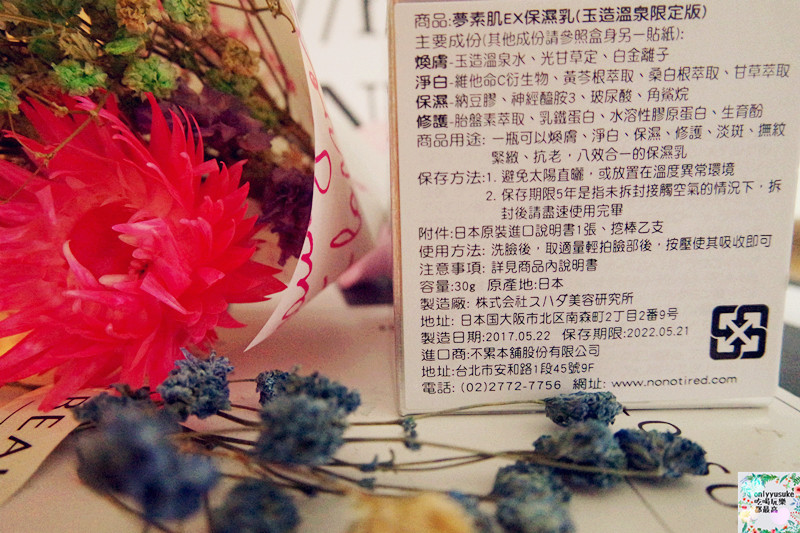 商品:夢素肌EX保濕乳(玉造溫泉限定版)
主要成份(其他成份請參照盒身另一貼紙):
煥膚-玉造溫泉水、光甘草定、白金離子
淨白-維他命C衍生物、黃芩根萃取、桑白根萃取、甘草萃取
保濕-納豆膠、神經醯胺3、玻尿酸、角鯊烷
修護-胎盤素萃取、乳鐵蛋白、水溶性膠原蛋白、生育酚
商品用途: 一瓶可以煥膚、淨白、保濕、修護、淡斑、撫紋
緊緻、抗老，八效合一的保濕乳
保存方法:1. 避免太陽直曬，或放置在溫度異常環境
2. 保存期限5年是指未拆封接觸空氣的情況下，拆
封後請盡速使用完畢
附件:日本原裝進口說明書1張、挖棒乙支
使用方法: 洗臉後，取適量輕拍臉部後，按壓使其吸收即可
注意事項: 詳見商品內說明書
容量:30g 原產地:日本
製造廠: 株式会社スハダ美容研究所
地址: 日本国大阪市北区南森町2丁目2番9号
製造日期:2017.05.22 保存期限:2022.05.21
進口商:不累本舖股份有限公司
地址:台北市安和路1段45號9F
電話: (02)2772-7756 網址: www.nonotired.com
onlyyusuke
吃喝玩樂
部最高